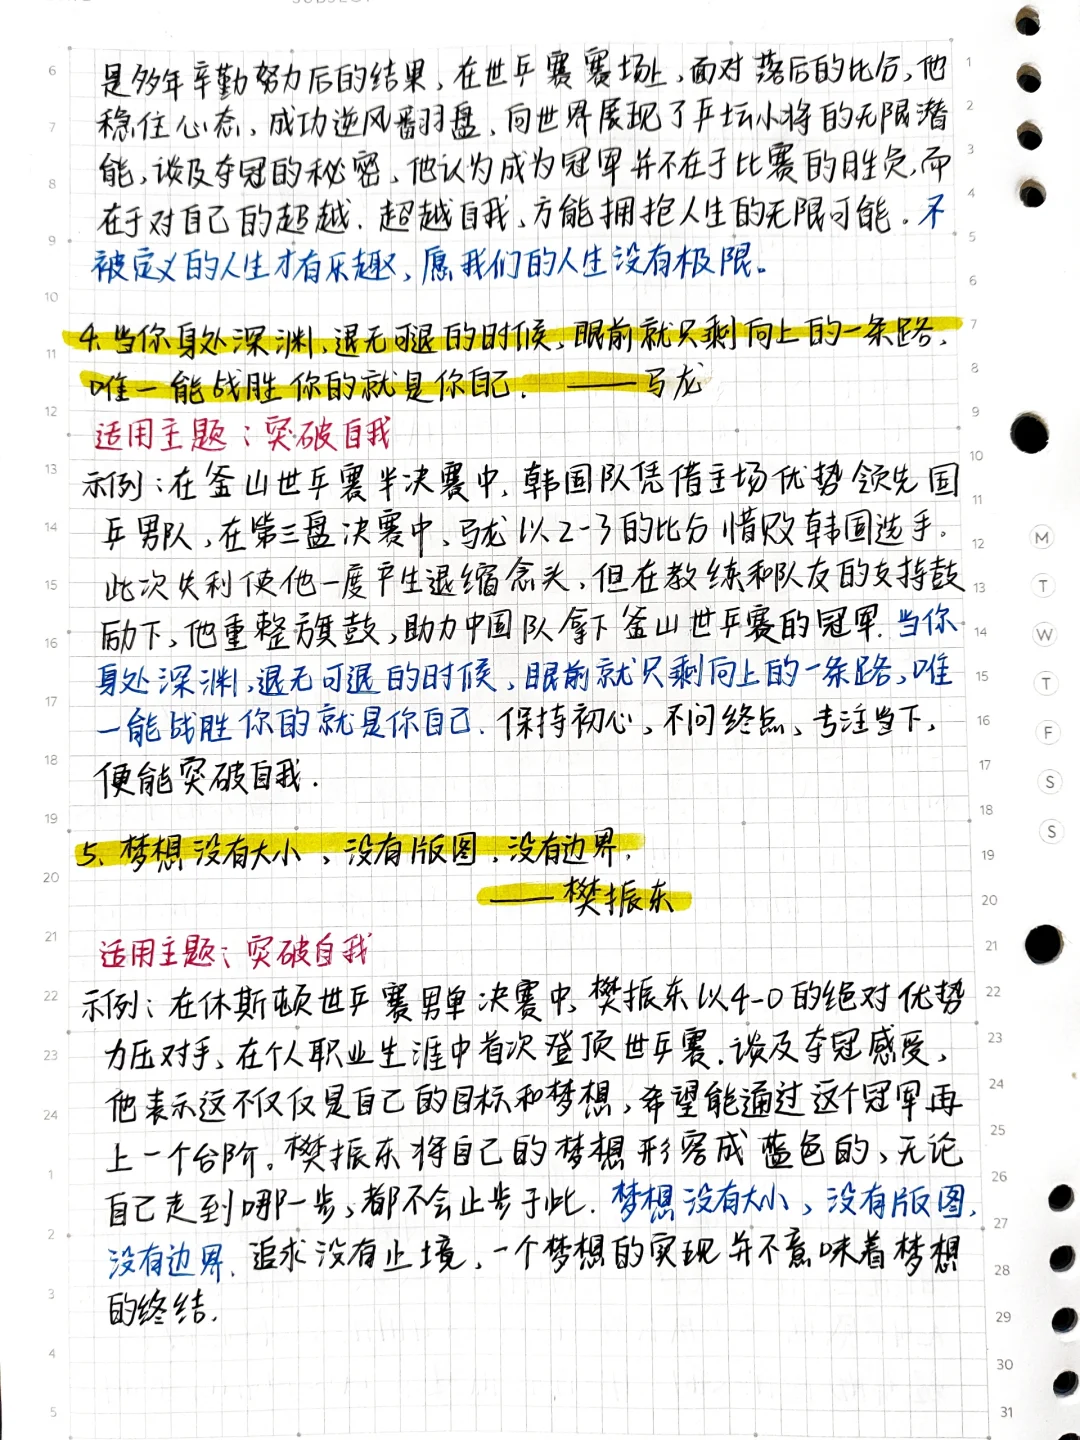 是多年辛勤努力后的结果,在世乒赛赛场上,面对落后的比分,他
稳住心态,成功逆风翻盘,向世界展现了乒坛小将的无限潜
能,谈及夺冠的秘密,他认为成为冠军并不在于比赛的胜负,而
在于对自己的超越.超越自我,方能拥抱人生的无限可能.不
被定义的人生才有乐趣,愿我们的人生没有极限。
4.当你身处深渊,退无可退的时候,眼前就只剩向上的一条路,
唯一能战胜你的就是你自己.——马龙
适用主题:突破自我
示例:在釜山世乒赛半决赛中,韩国队凭借主场优势领先国
乒男队,在第三盘决赛中,马龙以2-3的比分惜败韩国选手.
此次失利使他一度产生退缩念头,但在教练和队友的支持鼓
励下,他重整旗鼓,助力中国队拿下釜山世乒赛的冠军.当你
身处深渊,退无可退的时候,眼前就只剩向上的一条路,唯
一能战胜你的就是你自己.保持初心,不问终点,专注当下,
便能突破自我.
5、梦想没有大小,没有版图,没有边界.
——樊振东
适用主题:突破自我
示例:在休斯顿世乒赛男单决赛中,樊振东以4-0的绝对优势
力压对手,在个人职业生涯中首次登顶世乒赛.谈及夺冠感受,
他表示这不仅仅是自己的目标和梦想,希望能通过这个冠军再
上一个台阶。樊振东将自己的梦想形容成蓝色的,无论
自己走到哪一步,都不会止步于此.梦想没有大小,没有版图,
没有边界.追求没有止境,一个梦想的实现并不意味着梦想
的终结.
M
T
W
T
F
S
S